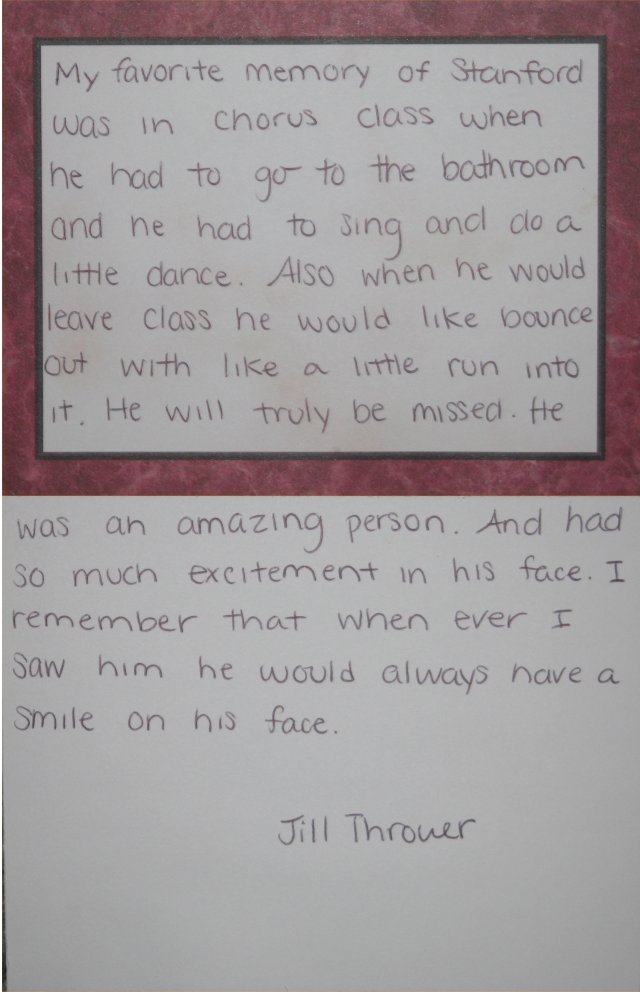 My favorite memory of Stanford
was in chorus class when
he had to go to the bathroom
and he had to sing and do a
little dance. Also when he would
leave class he would like bounce
out with like a little run into
it. He will truly be missed. He
was an amazing person. And had
so much excitement in his face. I
remember that when ever I
saw him he would always have a
smile on his face.
Jill Thrower